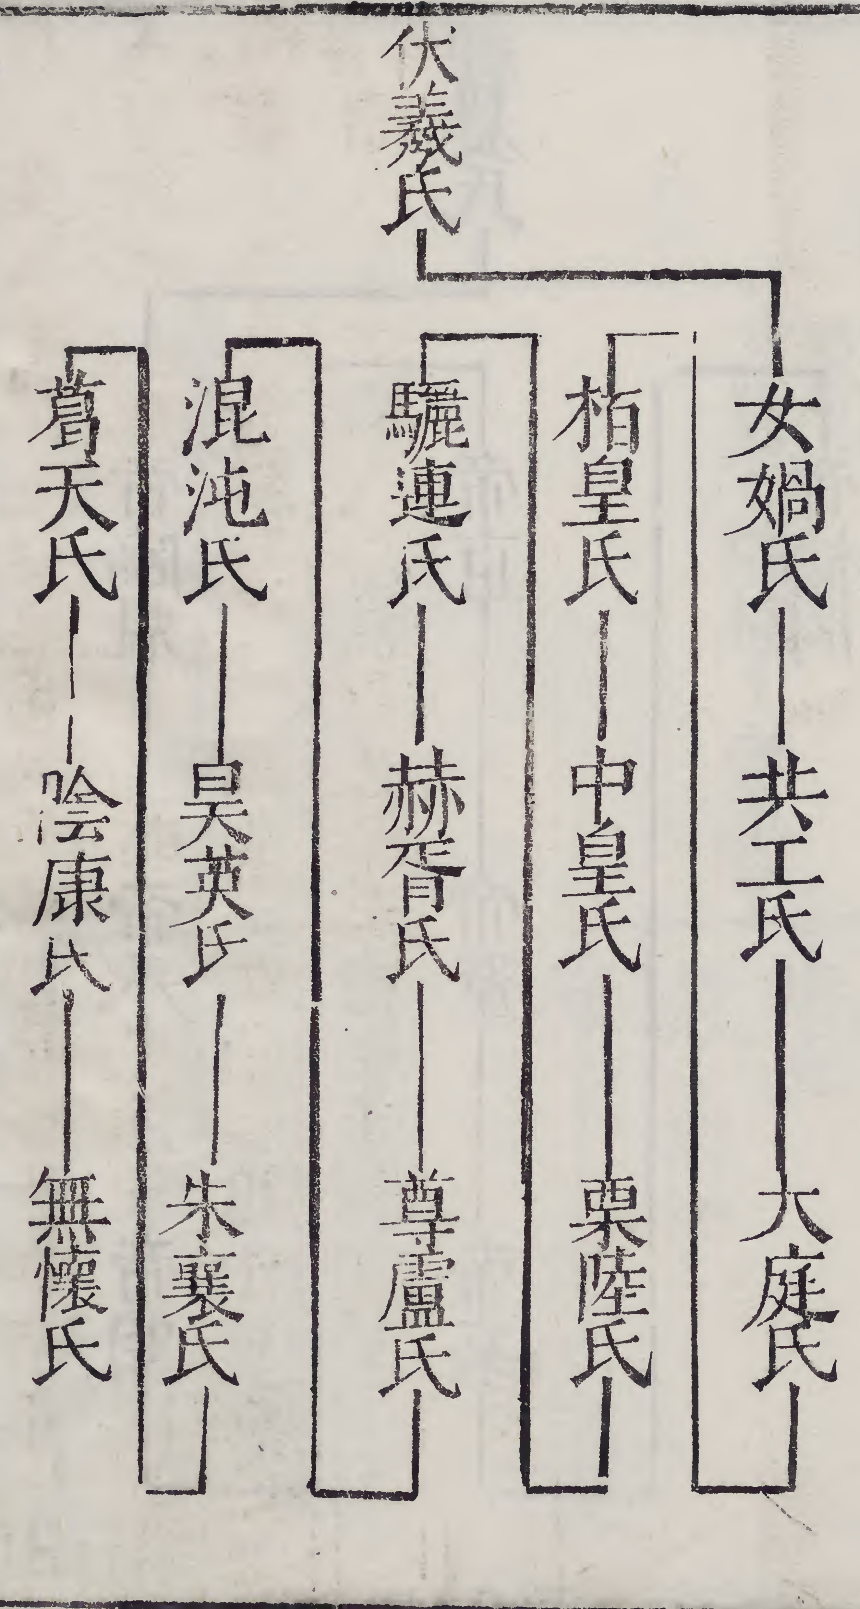 伏羲氏
女媧氏
共工氏
大庭氏
栢皇氏
中皇氏
栗陸氏
驪連氏
赫胥氏
尊盧氏
混沌氏
昊英氏
朱襄氏
葛天氏
陰康氏
無懷氏